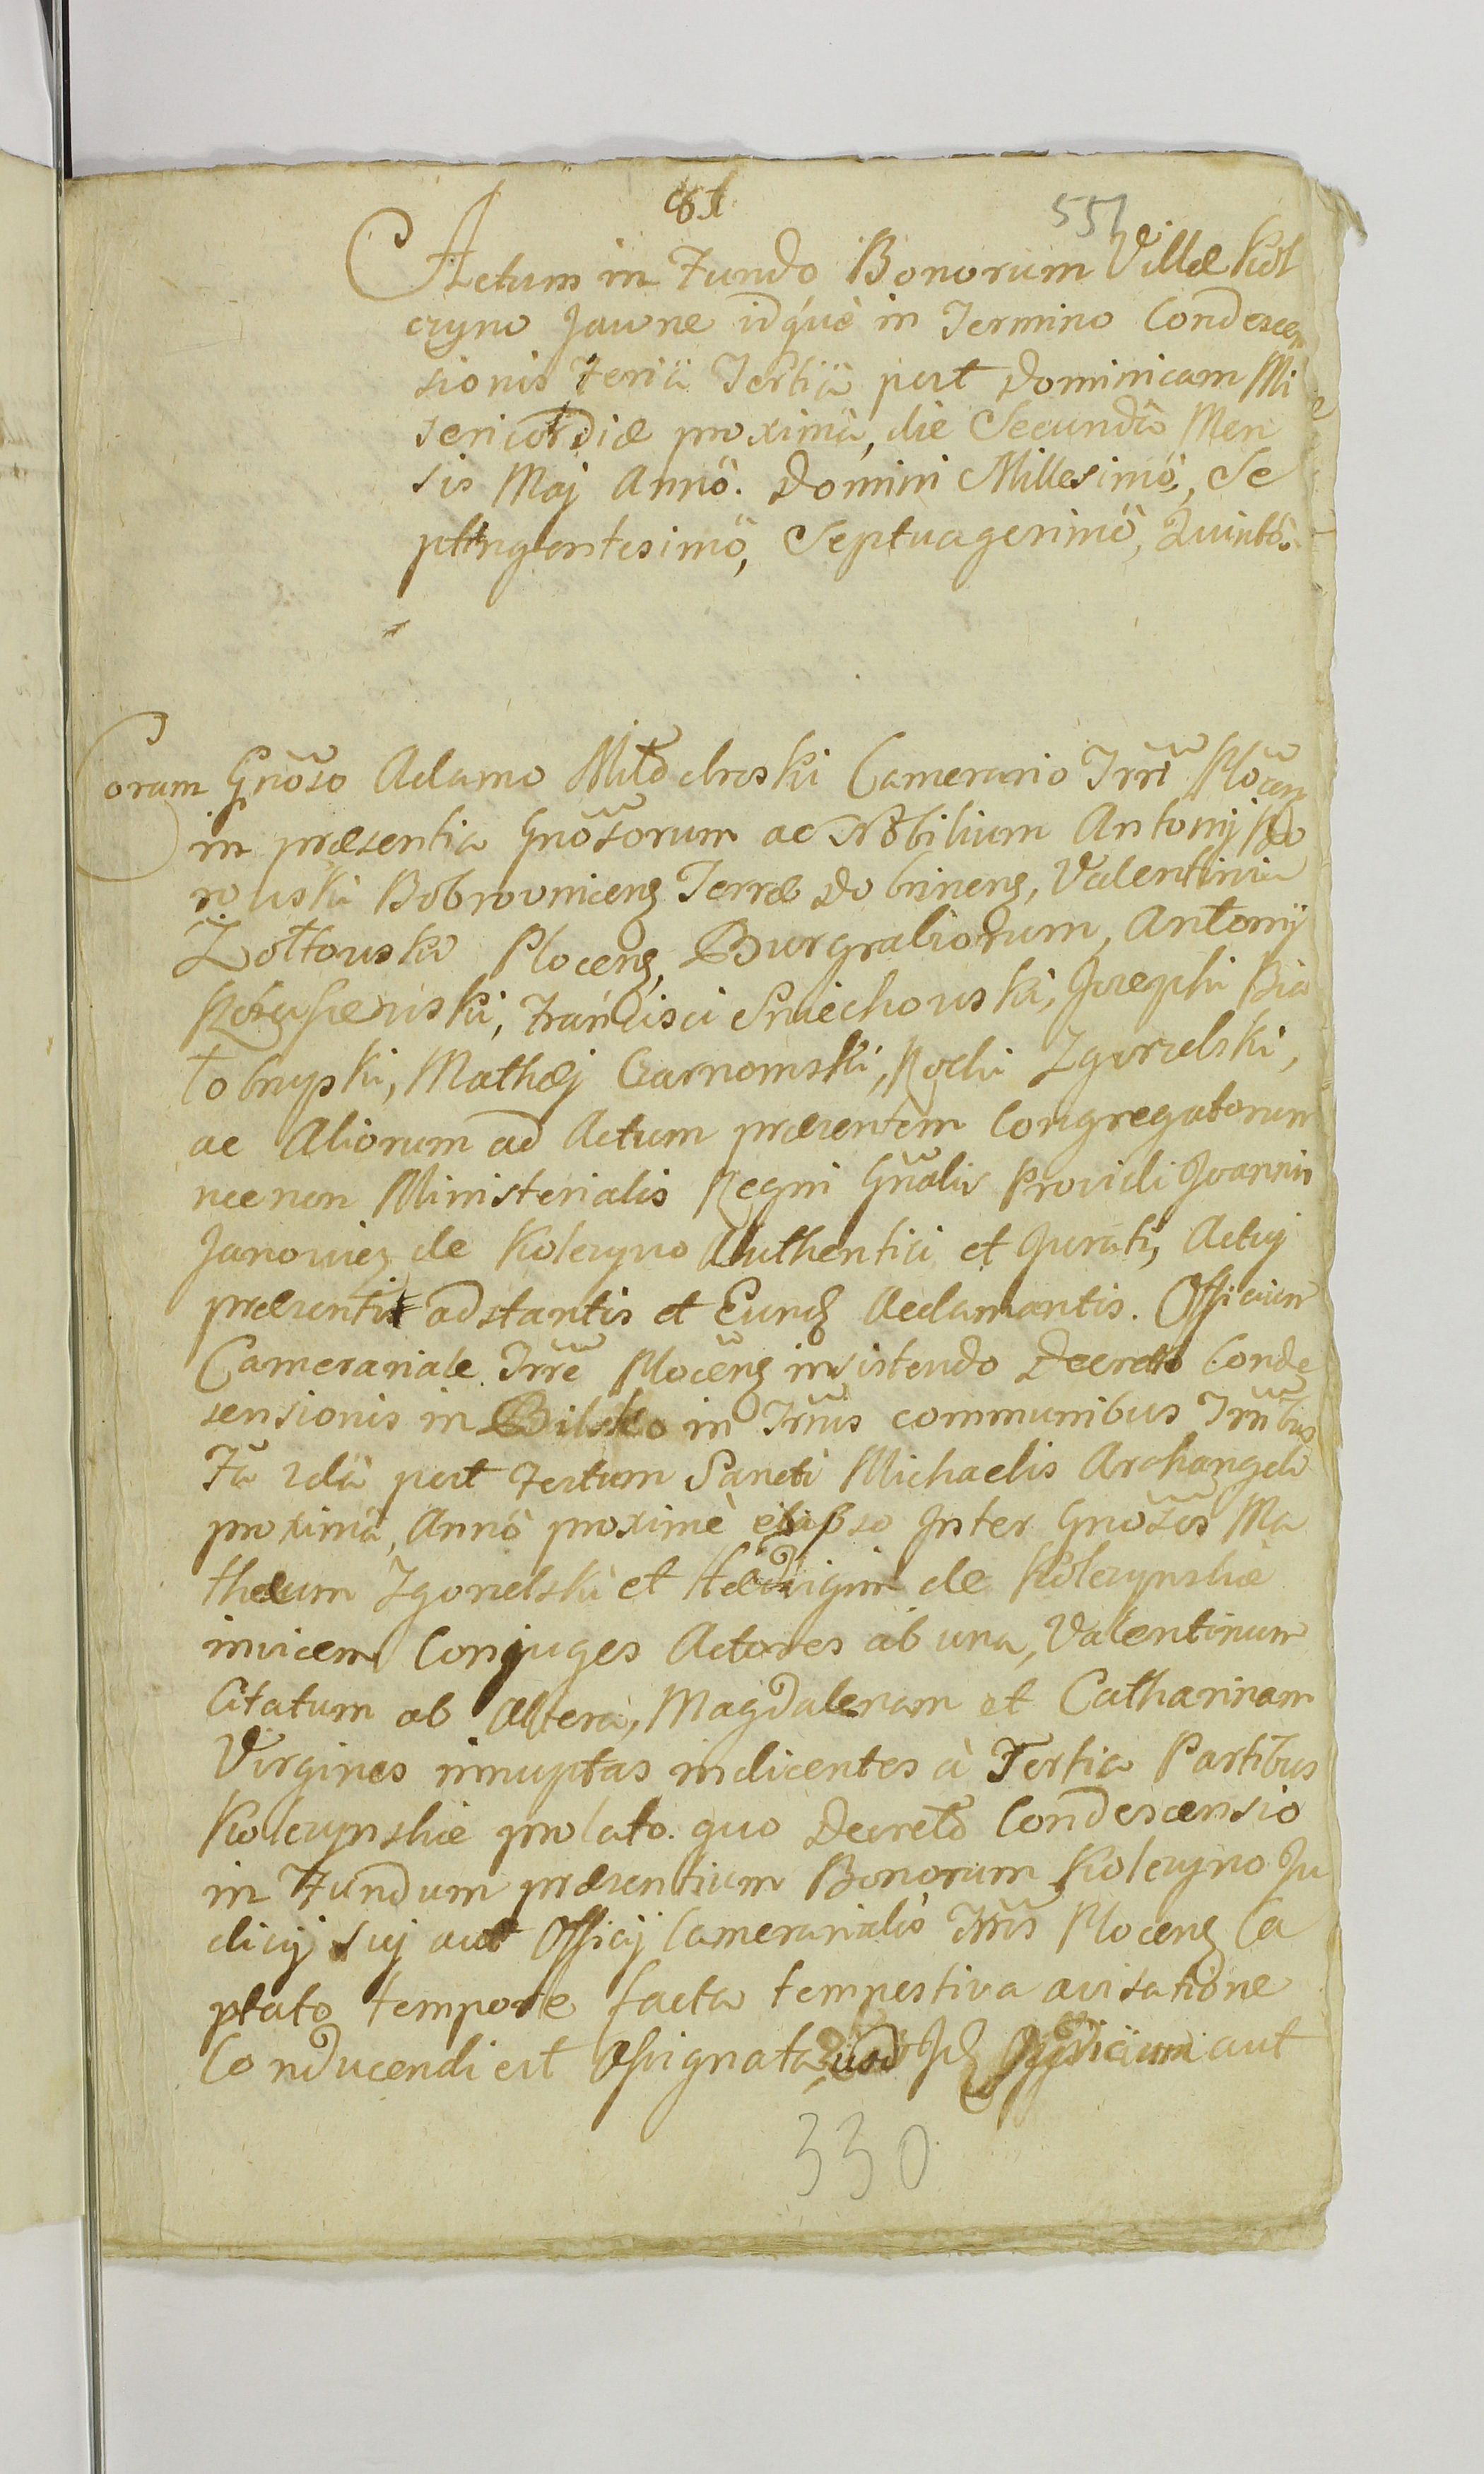 551
Actum in Fundo Bonorum Villæ Kol
czyno Jawne idq́ue in Termino Condescen
sionis Feria Tertia post Dominicam Mi
sericordiæ proxima, die Secunda Men
sis Maj Annö. Domini Millesimö, Se
ptingentesimö, Septuagesimö, Quintö.
Coram Gnõso Adamo Camerario Trræ Plocen
in præsentia Gnõsorum ac Nobilium Antonij
Bobrovnicens Terræ Dobrinens, Valentini
Zołtowski Plocens, Burgrabiorum, Antonij
Francisci Sniechowski, Josephi Bia
łobrzyski, Mathæj Czarnomski, Rochi Zgorzelski,
ac Aliorum ad Actum præsentem Congregatorum
necnon Ministerialis Regni Gñalis Providi Joannis
Janowicz de Kolczyno Authentici et Jurati, Actuj
præsenti adstantis et Eund Aclamantis. Officium
Camerariale Trræ Plocens insistendo Decreto Conde
sensionis in Bilsko in Trnis communibus Trribus
Fa 2da post Festum Sancti Michaelis Archangeli
proxima, Annö proximè elapso Inter Gnõsos Ma
thæum Zgorzelski et Hedvigim de Kolczynskie
invicem Conjuges Actores ab una, Valentinum
Citatum ab Altera, Magdalenam et Catharinam
Virgines innuptas indicentes à Tertia Partibus
Kolczynskie prolato. quo Decreto Condescensio
in Fundum præsentium Bonorum Kolczyno Ju
dicij suj aut Officij Camerarialis Trris Plocens Ca
ptato tempore facta tempestiva avisatione
Conducendi est Assignata, Officium aut
330